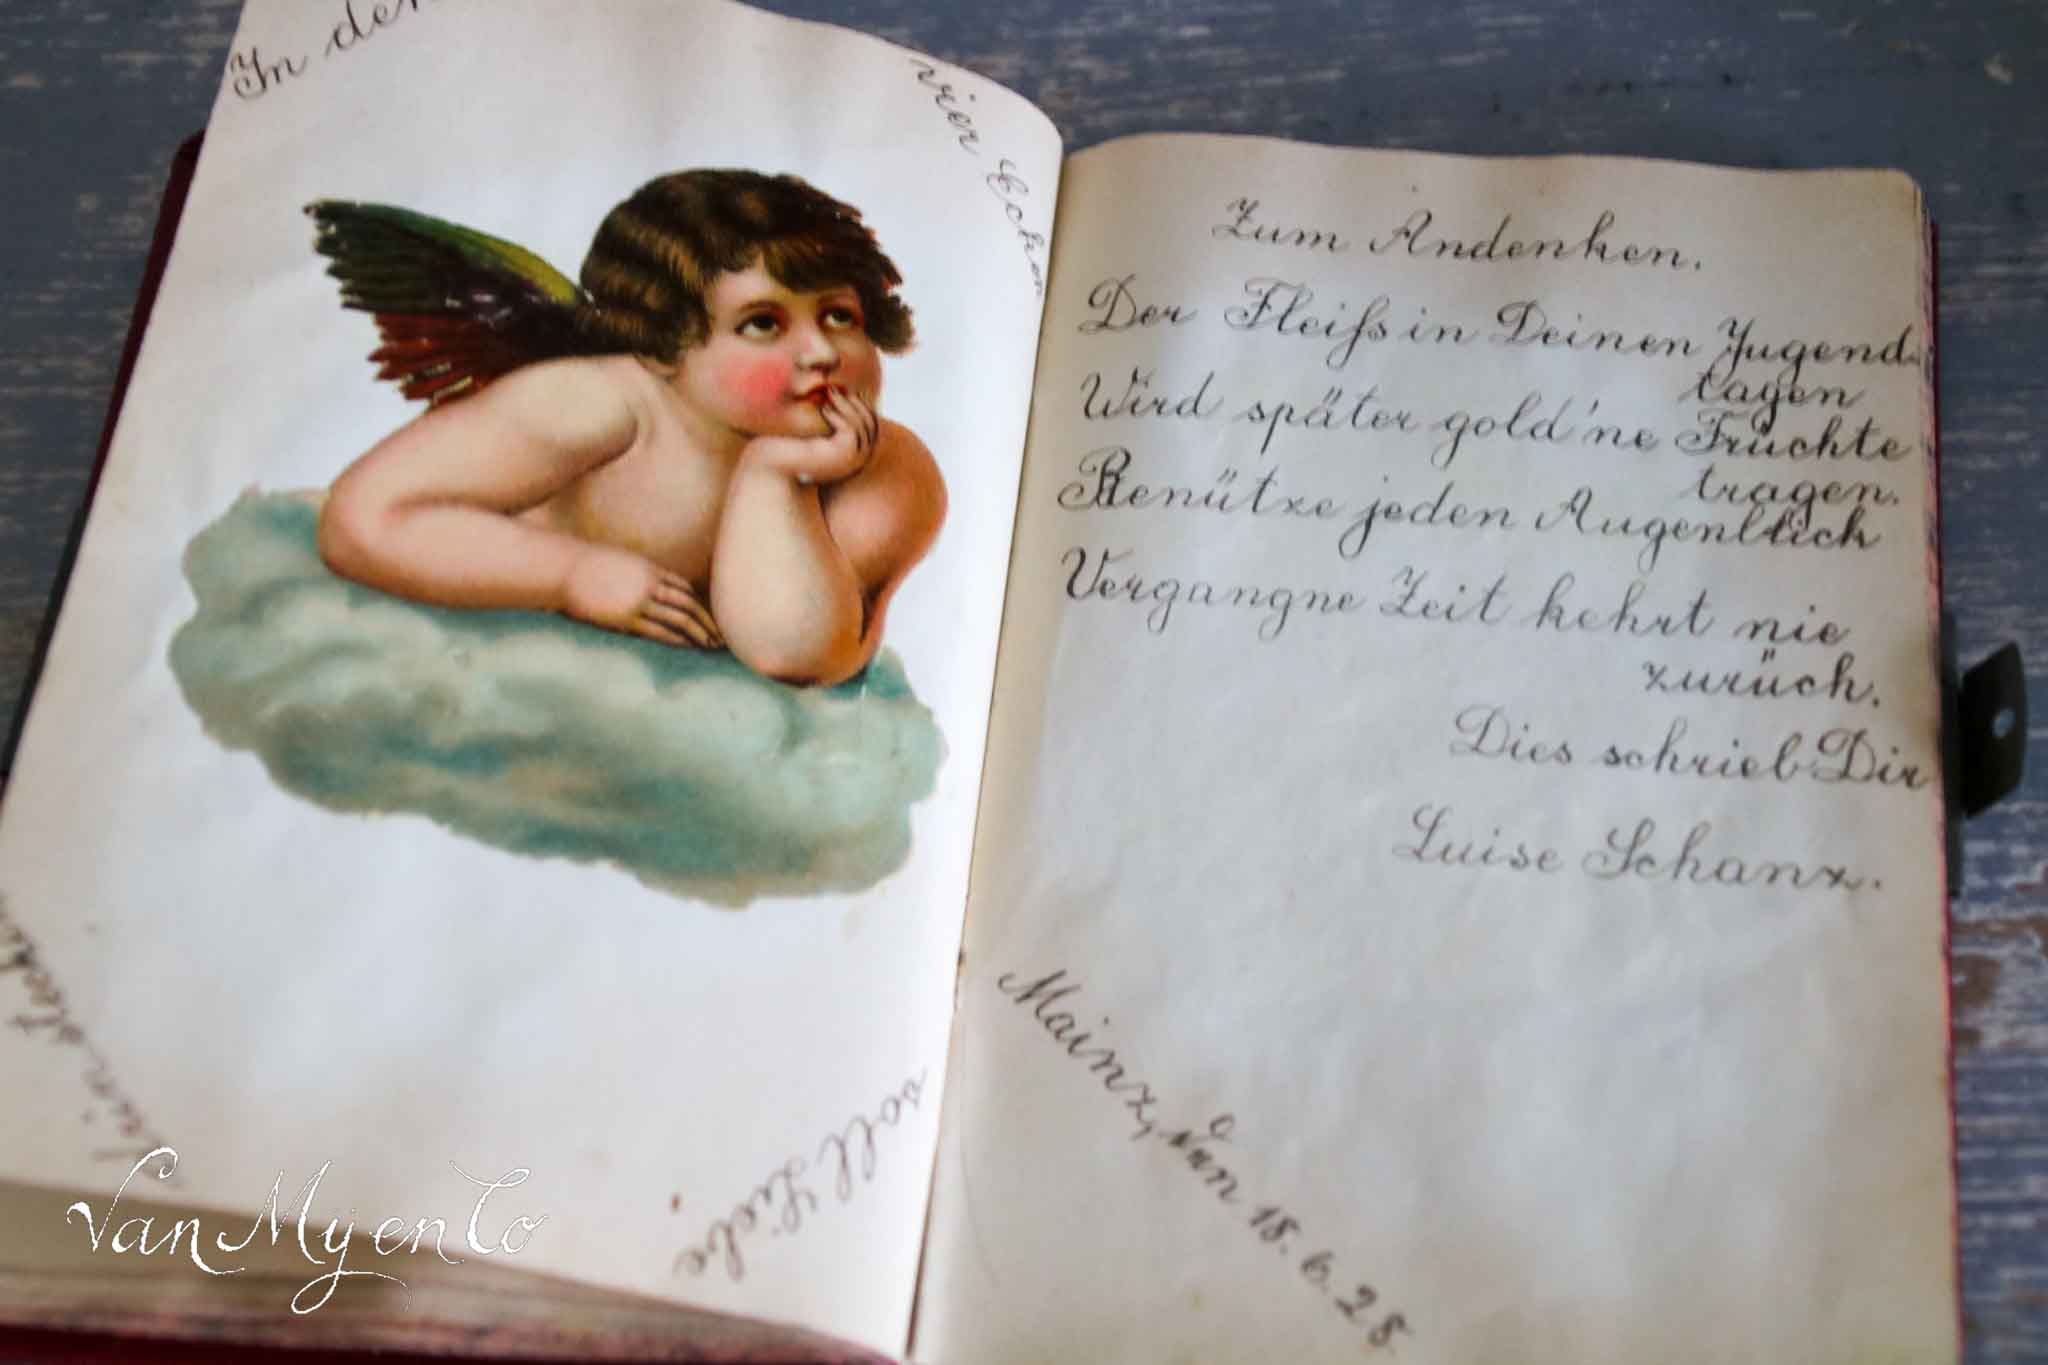 In den
vier Ecken
voll Liebe
Zum Andenken.
Der Fleiss in Deinen Jugend-
tagen
Wird später gold'ne Früchte
tragen.
Benütze jeden Augenblick
Vergangne Zeit kehrt nie
zurück.
Dies schrieb Dir
Luise Schanz.
Mainz, den 18.6.28
Van Myen Co